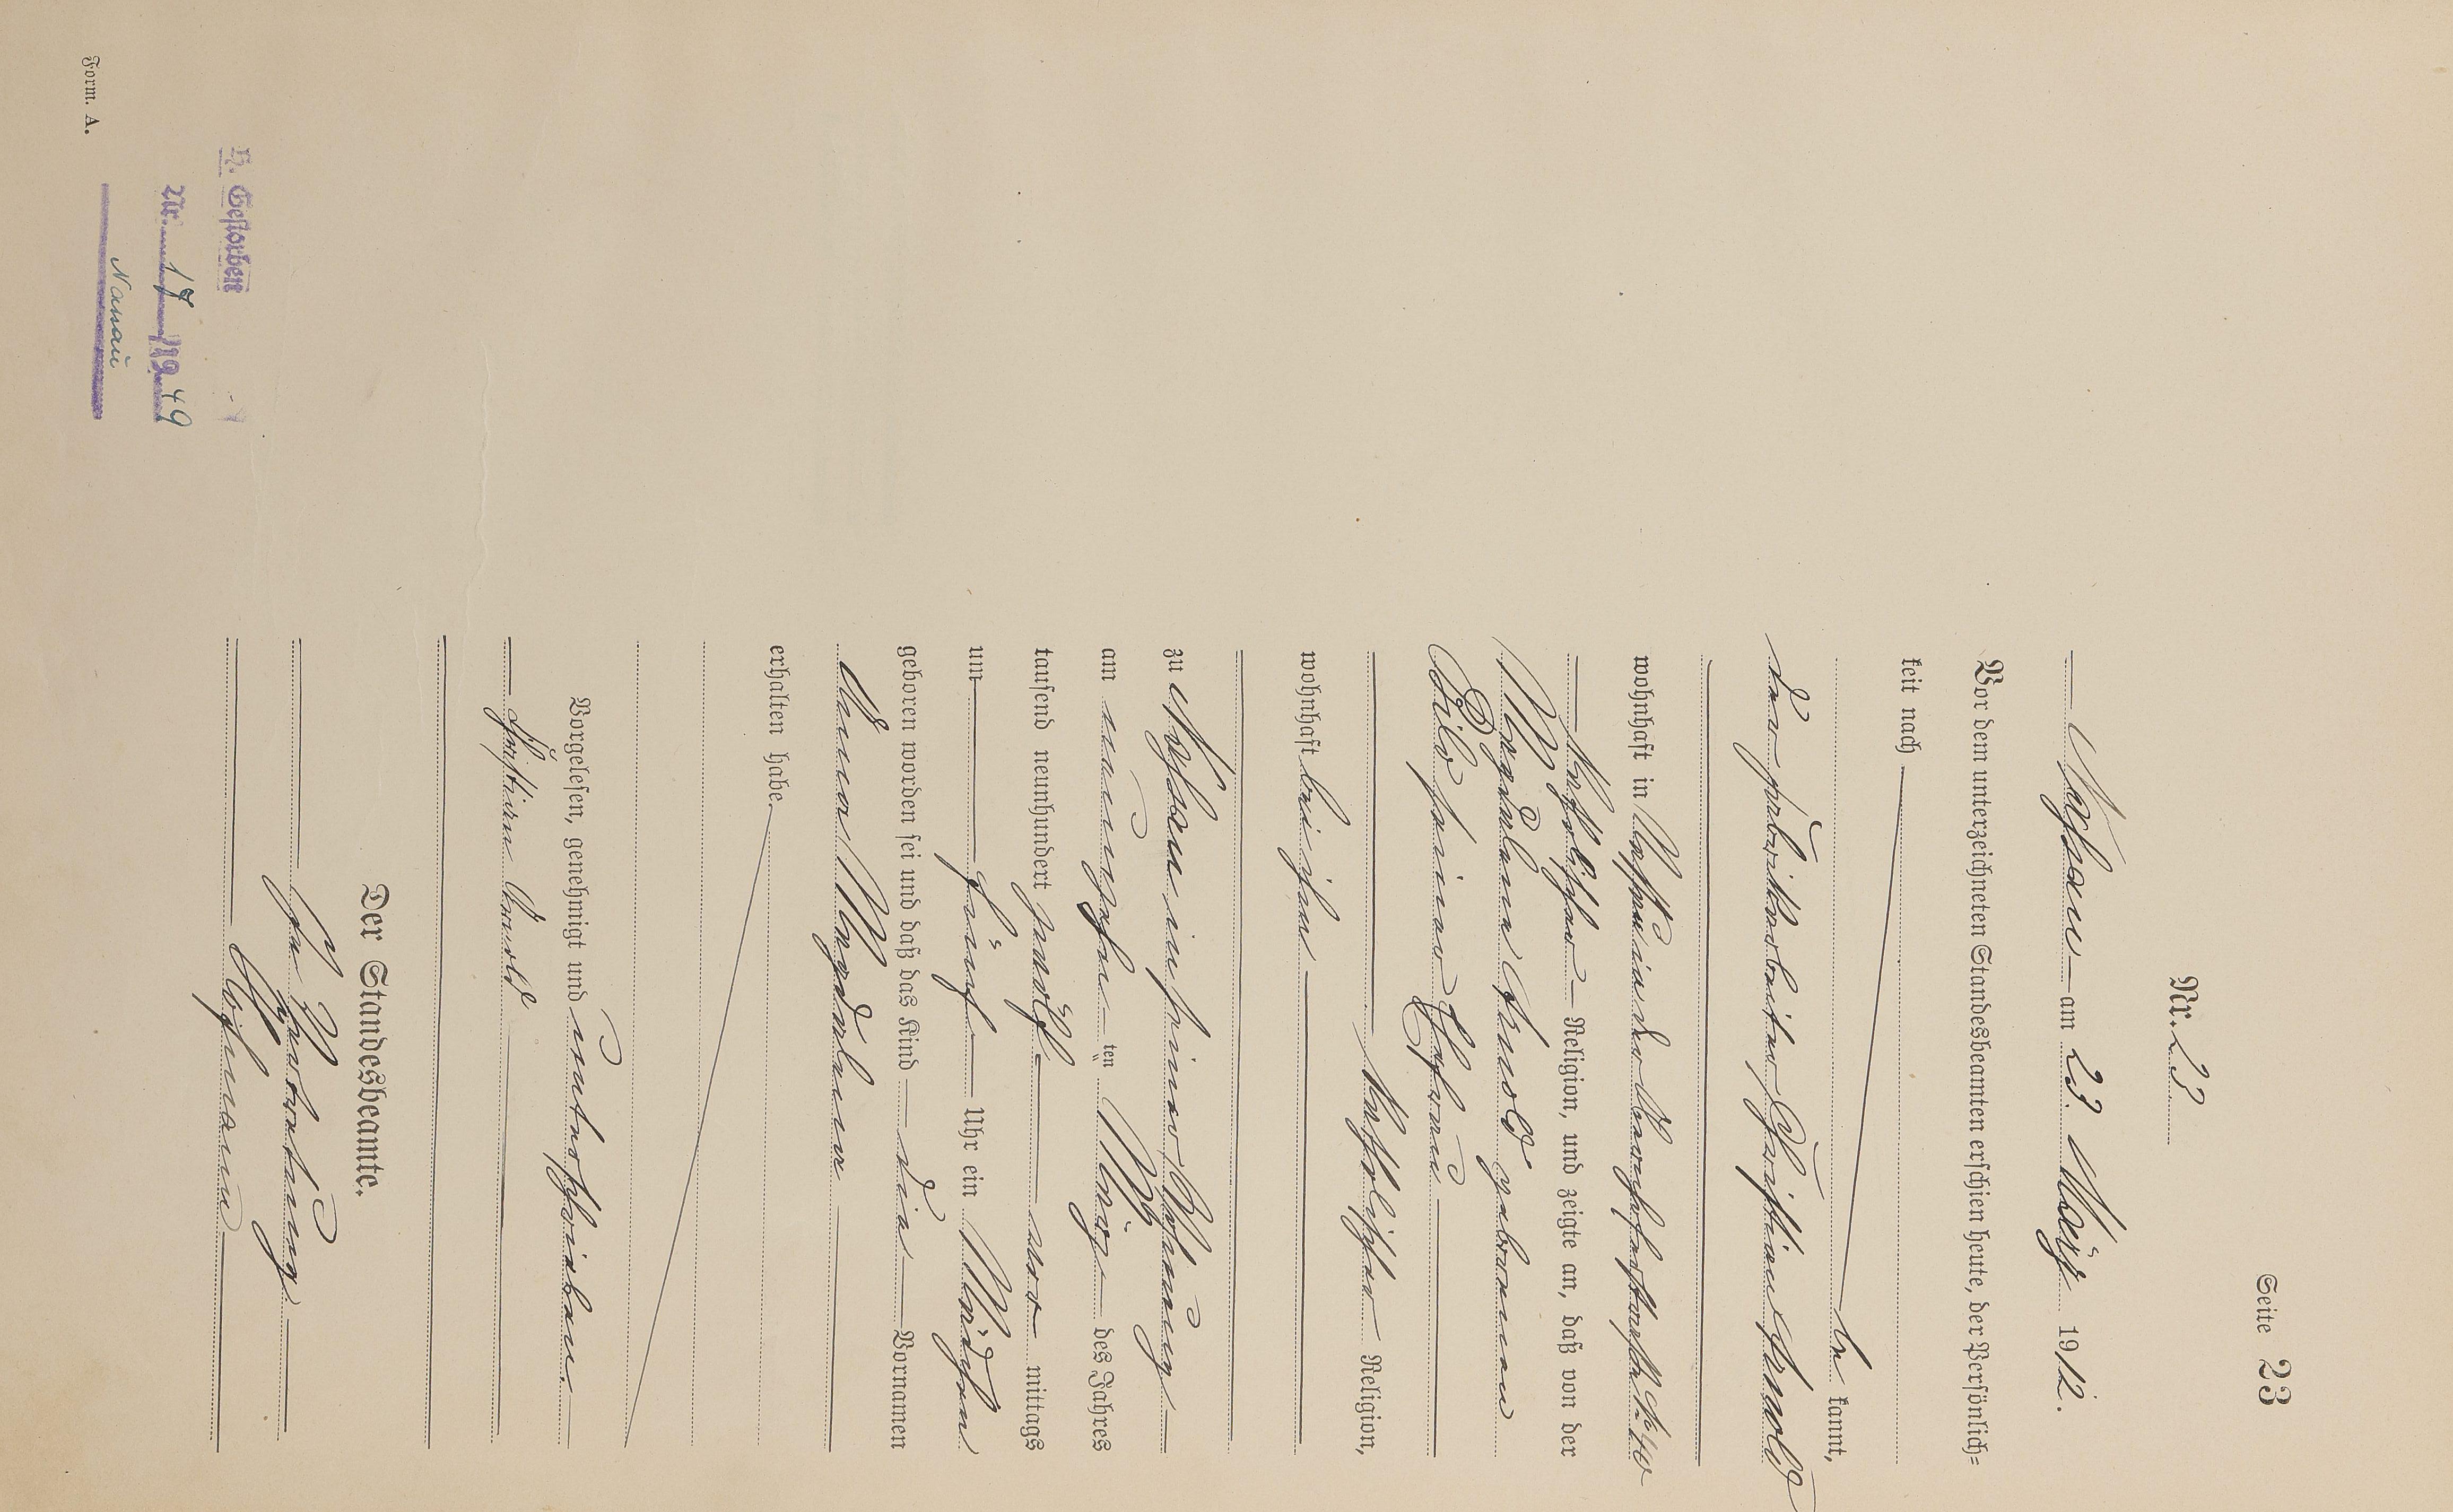 Seite 23
Nr. 23
Nassau am 23. März 1912.
Vor dem unterzeichneten Standesbeamten erschien heute, der Persönlich=
keit nach
be kannt,
der Fabrikarbeiter Christian Arnold
wohnhaft in Nassau in der
katholischer Religion, und zeigte an, daß von der
Magdalena Arnold geborenen
seiner Ehefrau
katholischer Religion,
wohnhaft bei ihm
zu Nassau in seiner Wohnung
am neunzehn ten März des Jahres
tausend neunhundert zwölf vor mittags
um fünf Uhr ein Mädchen
geboren worden sei und daß das Kind die Vornamen
Anna Magdalena
erhalten habe.
Vorgelesen, genehmigt und unterschrieben.
Christian Arnold
Der Standesbeamte.
In Vertretung
Form. A.
H. Gestorben
Nr. 17/1949
Nassau